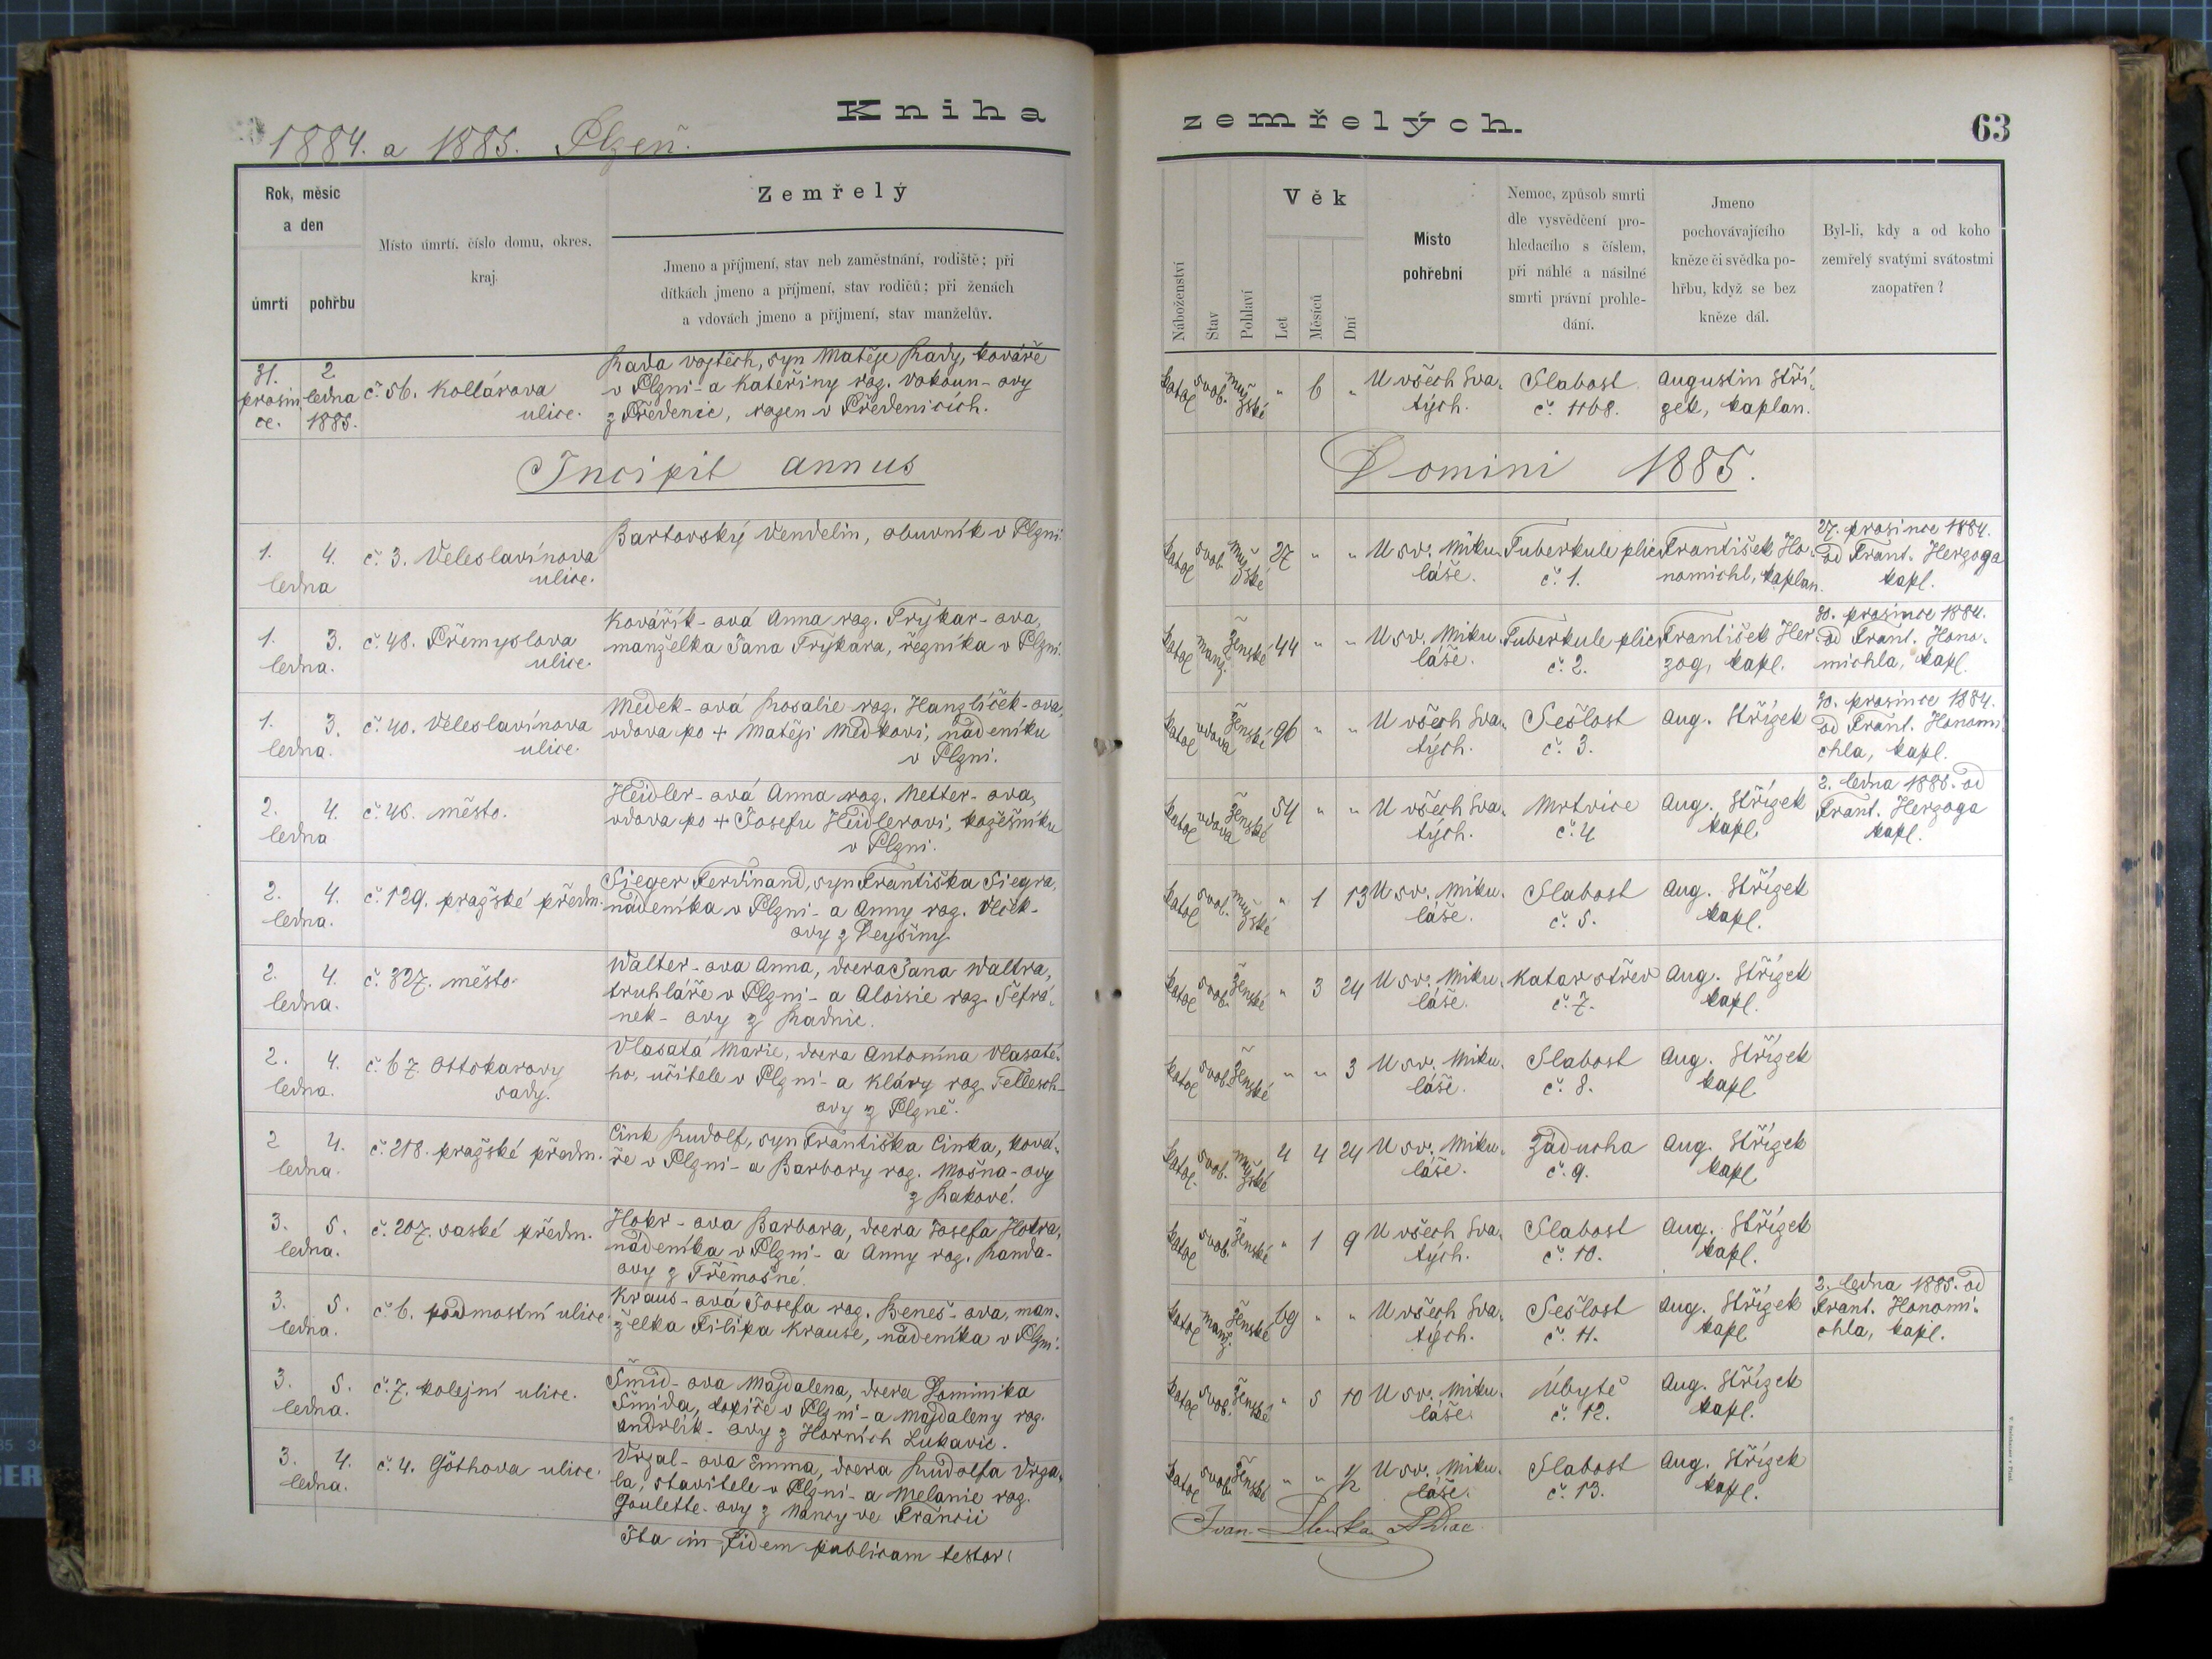 Kniha
1884. a 1885. Plzeň.
Rok, měsíc
a den
úmrtí
pohřbu
Místo úmrtí, číslo domu, okres,
kraj.
Zemřelý
Jmeno a příjmení, stav neb zaměstnání, rodiště; při
dítkách jmeno a příjmení, stav rodičů; při ženách
a vdovách jmeno a příjmení, stav manželův.
31.
prosin
ce.
2.
ledna
1885.
č. 56. Kollárova
ulice.
Rada Vojtěch, syn Matěje Rady, kováře
v Plzni - a Kateřiny roz. Vokoun-ovy
z Předenic, rozen v Předenicích.
Incipit annus
1. 4.
ledna
č. 3. Veleslavínova
ulice.
Bartovský Vendelin, obuvník v Plzni.
1. 3.
ledna.
č. 48. Přemyslova
ulice.
Kovářík-ová Anna roz. Trykar-ova,
manželka Jana Trykara, řezníka v Plzni.
1. 3.
ledna.
č. 40. Veleslavínova
ulice.
Medek-ová Rosalie roz. Hanzlíček-ova,
vdova po + Matěji Medkovi, nádeníku
v Plzni.
2. 4.
ledna
č. 46. město.
Heidler-ová Anna roz. Netter-ova,
vdova po + Josefu Heidlerovi, kožešníku
v Plzni.
2. 4.
ledna.
č. 129. pražské předm.
Sieger Ferdinand, syn Františka Siegra,
nádeníka v Plzni - a Anny roz. Vlček-
ovy z Deyšiny.
2. 4.
ledna.
č. 327. město.
Walter-ova Anna, dcera Jana Waltra,
truhláře v Plzni - a Aloisie roz. Šefrá-
nek-ovy z Radnic.
2. 4.
ledna.
č. 67. Ottokarovy
sady.
Vlasatá Marie, dcera Antonína Vlasaté-
ho, učitele v Plzni - a Kláry roz. Tellesch-
ovy z Plzně.
2 4.
ledna.
č. 218. pražské předm.
Cink Rudolf, syn Františka Cinka, ková-
ře v Plzni - a Barbory roz. Mošna-ovy
z Rakové.
3. 5.
ledna.
č. 207. saské předm.
Hokr-ova Barbora, dcera Josefa Hokra,
nádeníka v Plzni - a Anny roz. Randa-
ovy z Třemošné.
3. 5.
ledna.
č. 6. podmostní ulice.
Kraus-ová Josefa roz. Beneš-ova, man-
želka Filipa Krause, nádeníka v Plzni.
3. 5.
ledna.
č. 7. kolejní ulice.
Šmíd-ova Majdalena, dcera Dominika
Šmída, topiče v Plzni - a Majdaleny roz.
Andrlík-ovy z Horních Lukavic.
3. 4.
ledna.
č. 4. Göthova ulice.
Vrzal-ova Emma, dcera Rudolfa Vrza-
la, stavitele v Plzni - a Melanie roz.
Goulette-ovy z Nancy ve Francii
Ita in fidem publicam testor:
zemřelých.
63
Náboženství
Stav
Pohlaví
Věk
Let
Měsíců
Dní
Místo
pohřební
Nemoc, způsob smrti
dle vysvědčení pro-
hledacího s číslem,
při náhlé a násilné
smrti právní prohle-
dání.
Jmeno
pochovávajícího
kněze či svědka po-
hřbu, když se bez
kněze dál.
Byl-li, kdy a od koho
zemřelý svatými svátostmi
zaopatřen?
katol svob. mužské " 6 "
U všech Sva-
tých.
Slabost
č. 1168.
Augustin Stří-
zek, kaplan.
Domini 1885.
katol svob. mužské 27 " "
U sv. Miku-
láše.
Tuberkule plic
č. 1.
František Ho-
nomichl, kaplan.
27. prosince 1884.
od Frant. Herzoga
kapl.
katol manž. ženské 44 " "
U sv. Miku-
láše.
Tuberkule plic
č. 2.
František Her-
zog, kapl.
30. prosince 1884.
od Frant. Hono-
michla, kapl.
katol vdova ženské 96 " "
U všech Sva-
tých.
Sešlost
č. 3.
Aug. Střízek
30. prosince 1884.
od Frant. Honomi-
chla, kapl.
katol vdova ženské 54 " "
U všech Sva-
tých.
Mrtvice
č. 4
Aug. Střízek
kapl.
2. ledna 1885. od
Frant. Herzoga
kapl.
katol svob. mužské " 1 13
U sv. Miku-
láše.
Slabost
č. 5.
Aug. Střízek
kapl.
katol svob. ženské " 3 24
U sv. Miku-
láše.
Katar střev
č. 7.
Aug. Střízek
kapl.
katol svob. ženské " " 3
U sv. Miku-
láše.
Slabost
č. 8.
Aug. Střízek
kapl.
katol. svob. mužské 4 4 24
U sv. Miku-
láše.
Záducha
č. 9.
Aug. Střízek
kapl.
katol svob. ženské " 1 9
U všech Sva-
tých.
Slabost
č. 10.
Aug. Střízek
kapl.
katol manž. ženské 69 " "
U všech Sva-
tých.
Sešlost
č. 11.
Aug. Střízek
kapl
2. ledna 1885. od
Frant. Honomi-
chla, kapl.
katol svob. ženské " 5 10
U sv. Miku-
láše.
Úbytě
č. 12.
Aug. Střízek
kapl.
katol svob. ženské " " 1/2
U sv. Miku-
láše.
Slabost
č. 13.
Aug. Střízek
kapl.